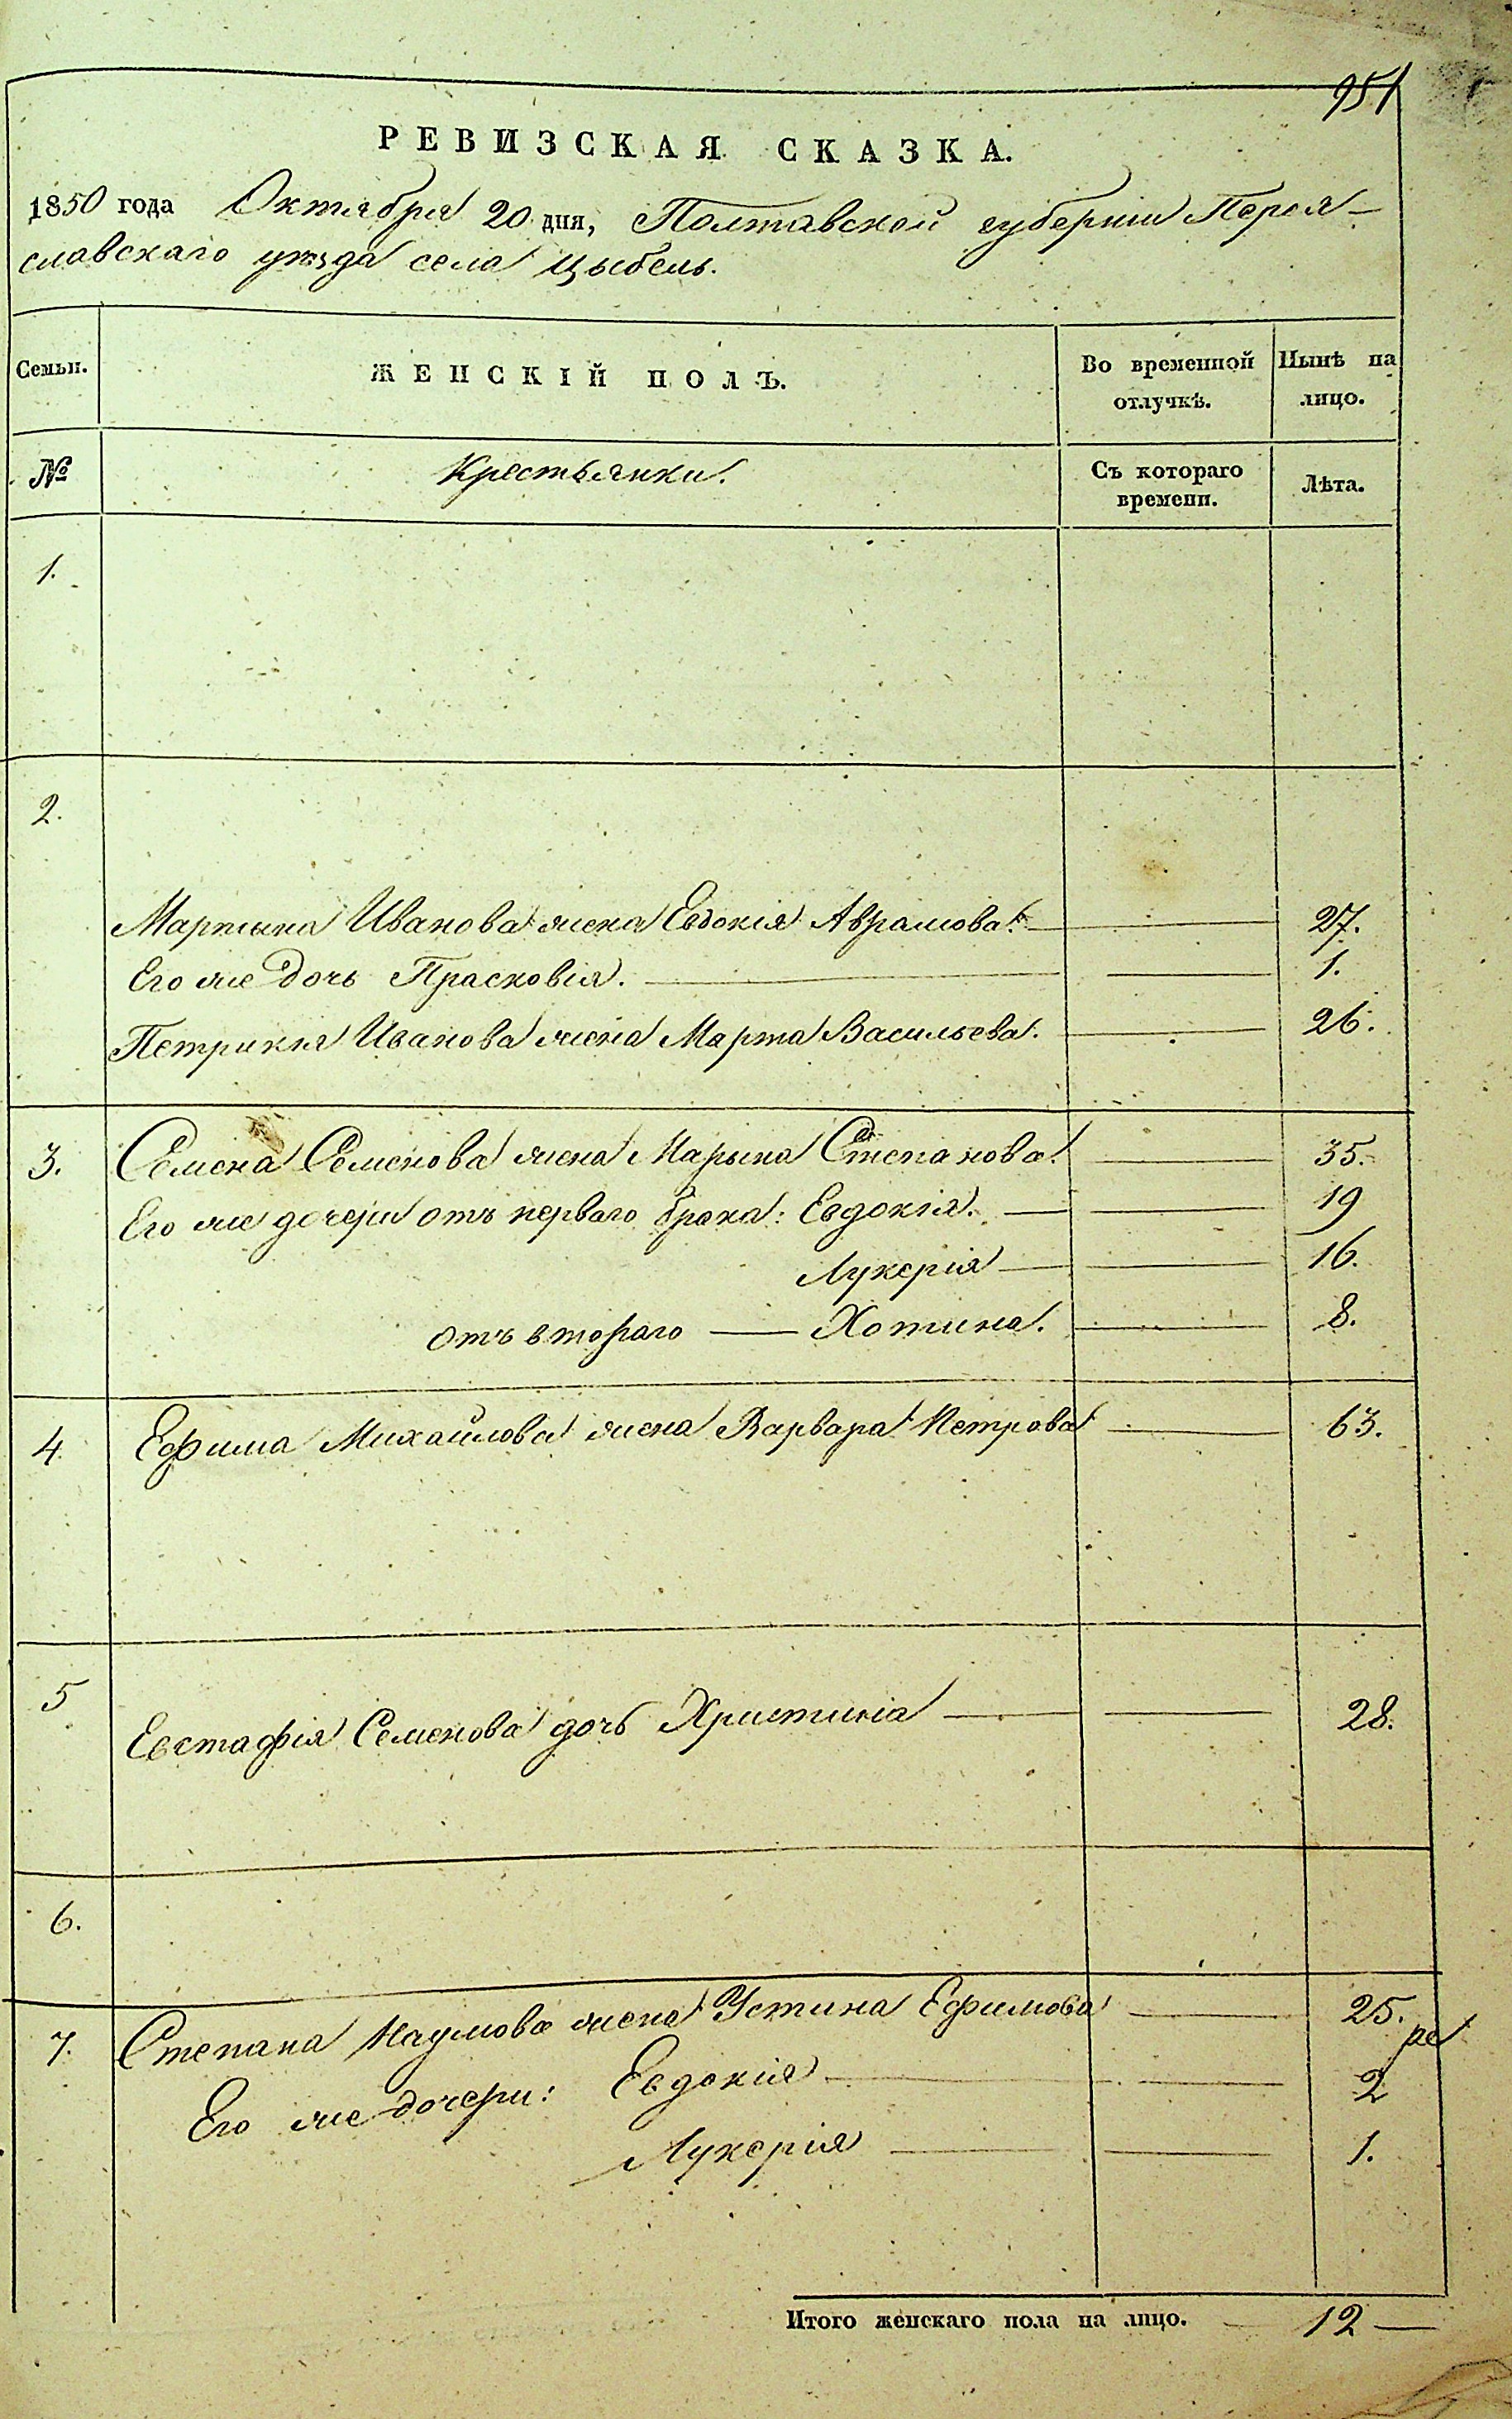 951
РЕВИЗСКАЯ СКАЗКА.
1850 года Октября 20 дня, Полтавской губерніи Перея-
славскаго уѣзда села Цыбель.
Семьи. ЖЕНСКІЙ ПОЛЪ. Во временной отлучкѣ. Нынѣ на лицо.
№ Крестьянки. Съ котораго времени. Лѣта.
1.
2.
Мартына Иванова жена Евдокія Аврамова. 27.
Его же дочь Прасковія. 1.
Петрикія Иванова жена Марта Васильева. 26.
3. Семена Семенова жена Марына Степанова. 35.
Его же дочери отъ перваго брака: Евдокія. 19
Лукерія 16.
отъ втораго — Хотина. 8.
4. Ефима Михайлова жена Варвара Петрова 63.
5 Евстафія Семенова дочь Христинія 28.
6.
7. Степана Наумова жена Устина Ефимова 25.
Его же дочери: Евдокія 2
Лукерія 1.
Итого женскаго пола на лицо. 12